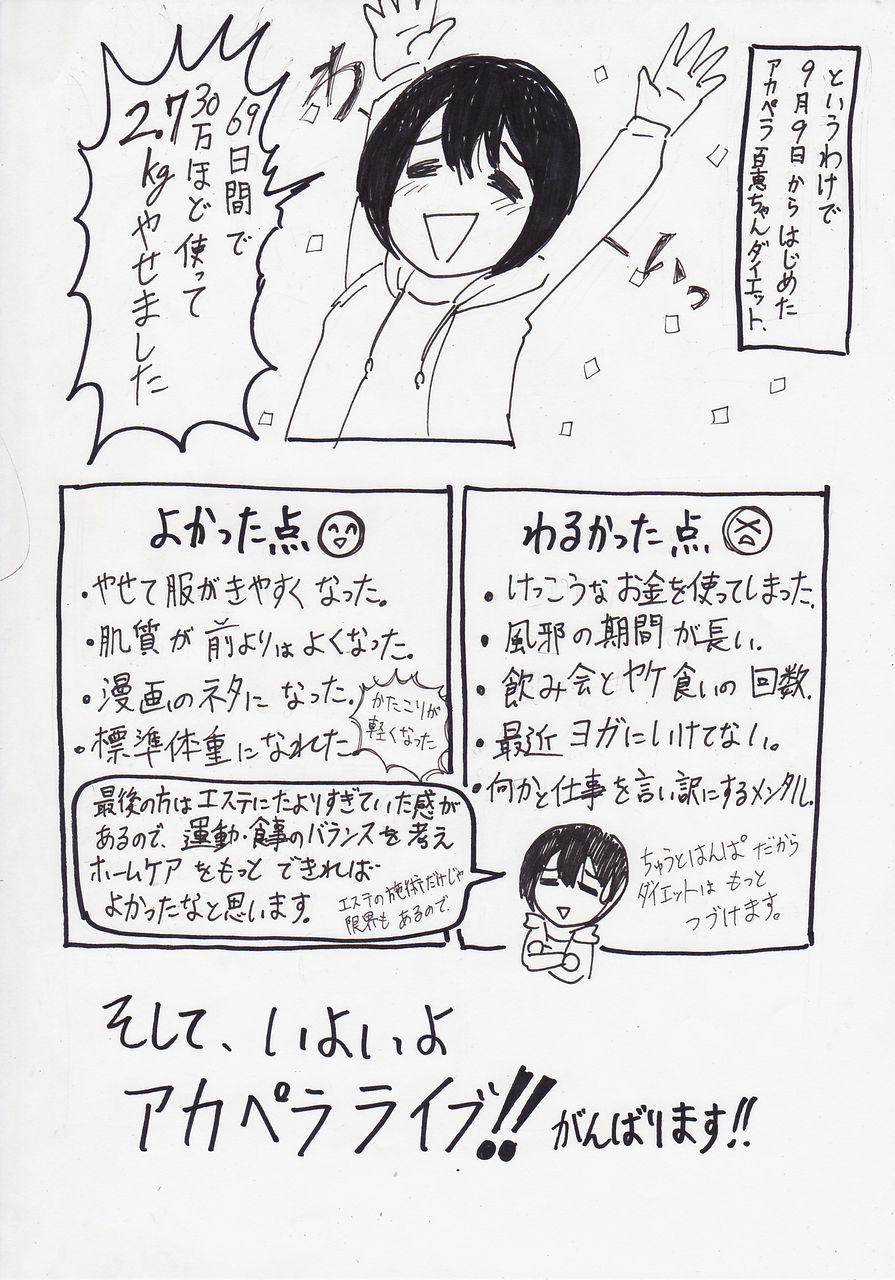 というわけで
9月9日からはじめた
アカペラ百恵ちゃんダイエット、
わーいっ
69日間で
30万ほど使って
2.7kgやせました
よかった点
・やせて服がきやすくなった。
・肌質が前よりはよくなった。
・漫画のネタになった。
・標準体重になれた
かたこりが
軽くなった
わるかった点
・けっこうなお金を使ってしまった。
・風邪の期間が長い。
・飲み会とヤケ食いの回数。
・最近ヨガにいけてない。
・何かと仕事を言い訳にするメンタル。
最後の方はエステにたよりすぎていた感が
あるので、運動・食事のバランスを考え
ホームケアをもっとできれば
よかったなと思います。
エステの施術だけじゃ
限界もあるので。
ちゅうとはんぱだから
ダイエットはもっと
つづけます。
そして、いよいよ
アカペラライブ!!がんばります!!